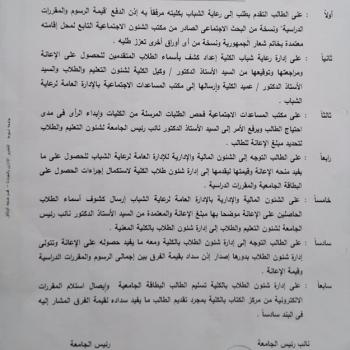 أولاً : على الطالب التقدم بطلب إلى رعاية الشباب بكليته مرفقاً به إذن الدفع "قيمة الرسوم والمقررات
الدراسية" ونسخة من البحث الاجتماعى الصادر من مكتب الشئون الاجتماعية التابع لمحل إقامته
معتمدة بخاتم شعار الجمهورية ونسخة من أى أوراق أخرى تعزز طلبه .
ثانياً : على إدارة رعاية شباب الكلية إعداد كشف بأسماء الطلاب المتقدمين للحصول على الإعانة
ومراجعتها وتوقيعها من السيد الأستاذ الدكتور / وكيل الكلية لشئون التعليم والطلاب والسيد
الدكتور / عميد الكلية وإرسالها إلى مكتب المساعدات الاجتماعية بالإدارة العامة لرعاية
الشباب .
ثالثاً : على مكتب المساعدات الاجتماعية فحص الطلبات المرسلة من الكليات وإبداء الرأى فى مدى
احتياج الطالب ويرفع الأمر إلى السيد الأستاذ الدكتور نائب رئيس الجامعة لشئون التعليم والطلاب
لتحديد مبلغ الإعانة للطالب .
رابعاً : على الطالب التوجه إلى الشئون المالية والإدارية للإدارة العامة لرعاية الشباب للحصول على ما
يفيد منحه الإعانة وقيمتها ليقدمها إلى إدارة شئون طلاب الكلية لاستكمال إجراءات الحصول على
البطاقة الجامعية والمقررات الدراسية .
خامساً : على الشئون المالية والإدارية بالإدارة العامة لرعاية الشباب إرسال كشوف أسماء الطلاب
الحاصلين على الإعانة موضحاً بها مبلغ الإعانة والمعتمدة من السيد الأستاذ الدكتور نائب رئيس
الجامعة لشئون التعليم والطلاب إلى إدارة شئون الطلاب بالكلية المعنية .
سادساً : على الطالب التوجه إلى إدارة شئون الطلاب بالكلية ومعه ما يفيد حصوله على الإعانة وتتولى
إدارة شئون الطلاب بدورها إصدار إذن سداد بقيمة الفرق بين إجمالى الرسوم والمقررات الدراسية
وقيمة الإعانة .
سابعاً : على إدارة شئون الطلاب بالكلية تسليم الطالب البطاقة الجامعية وإيصال استلام المقررات
الالكترونية من مركز الكتاب بالكلية بمجرد تقديم الطالب ما يفيد سداده لقيمة الفرق المشار إليه
فى البند سادساً .
نائب رئيس الجامعة رئيس الجامعة